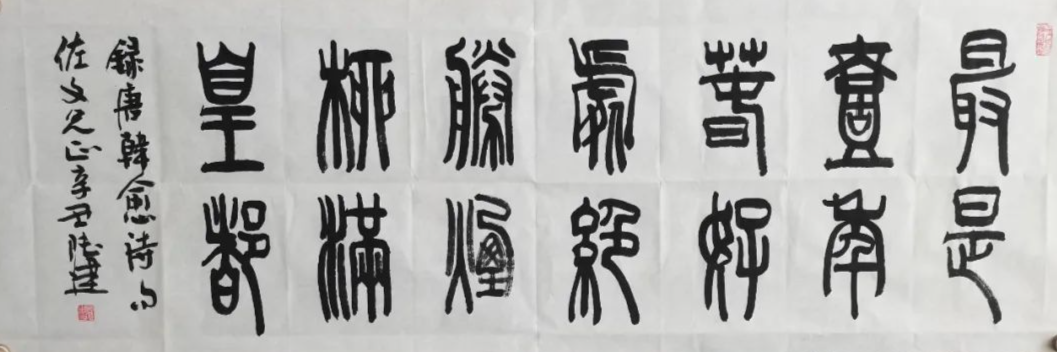 最是
壹年
春好
處絕
勝煙
柳滿
皇都
録唐韓愈詩句
佐文兄正辛丑